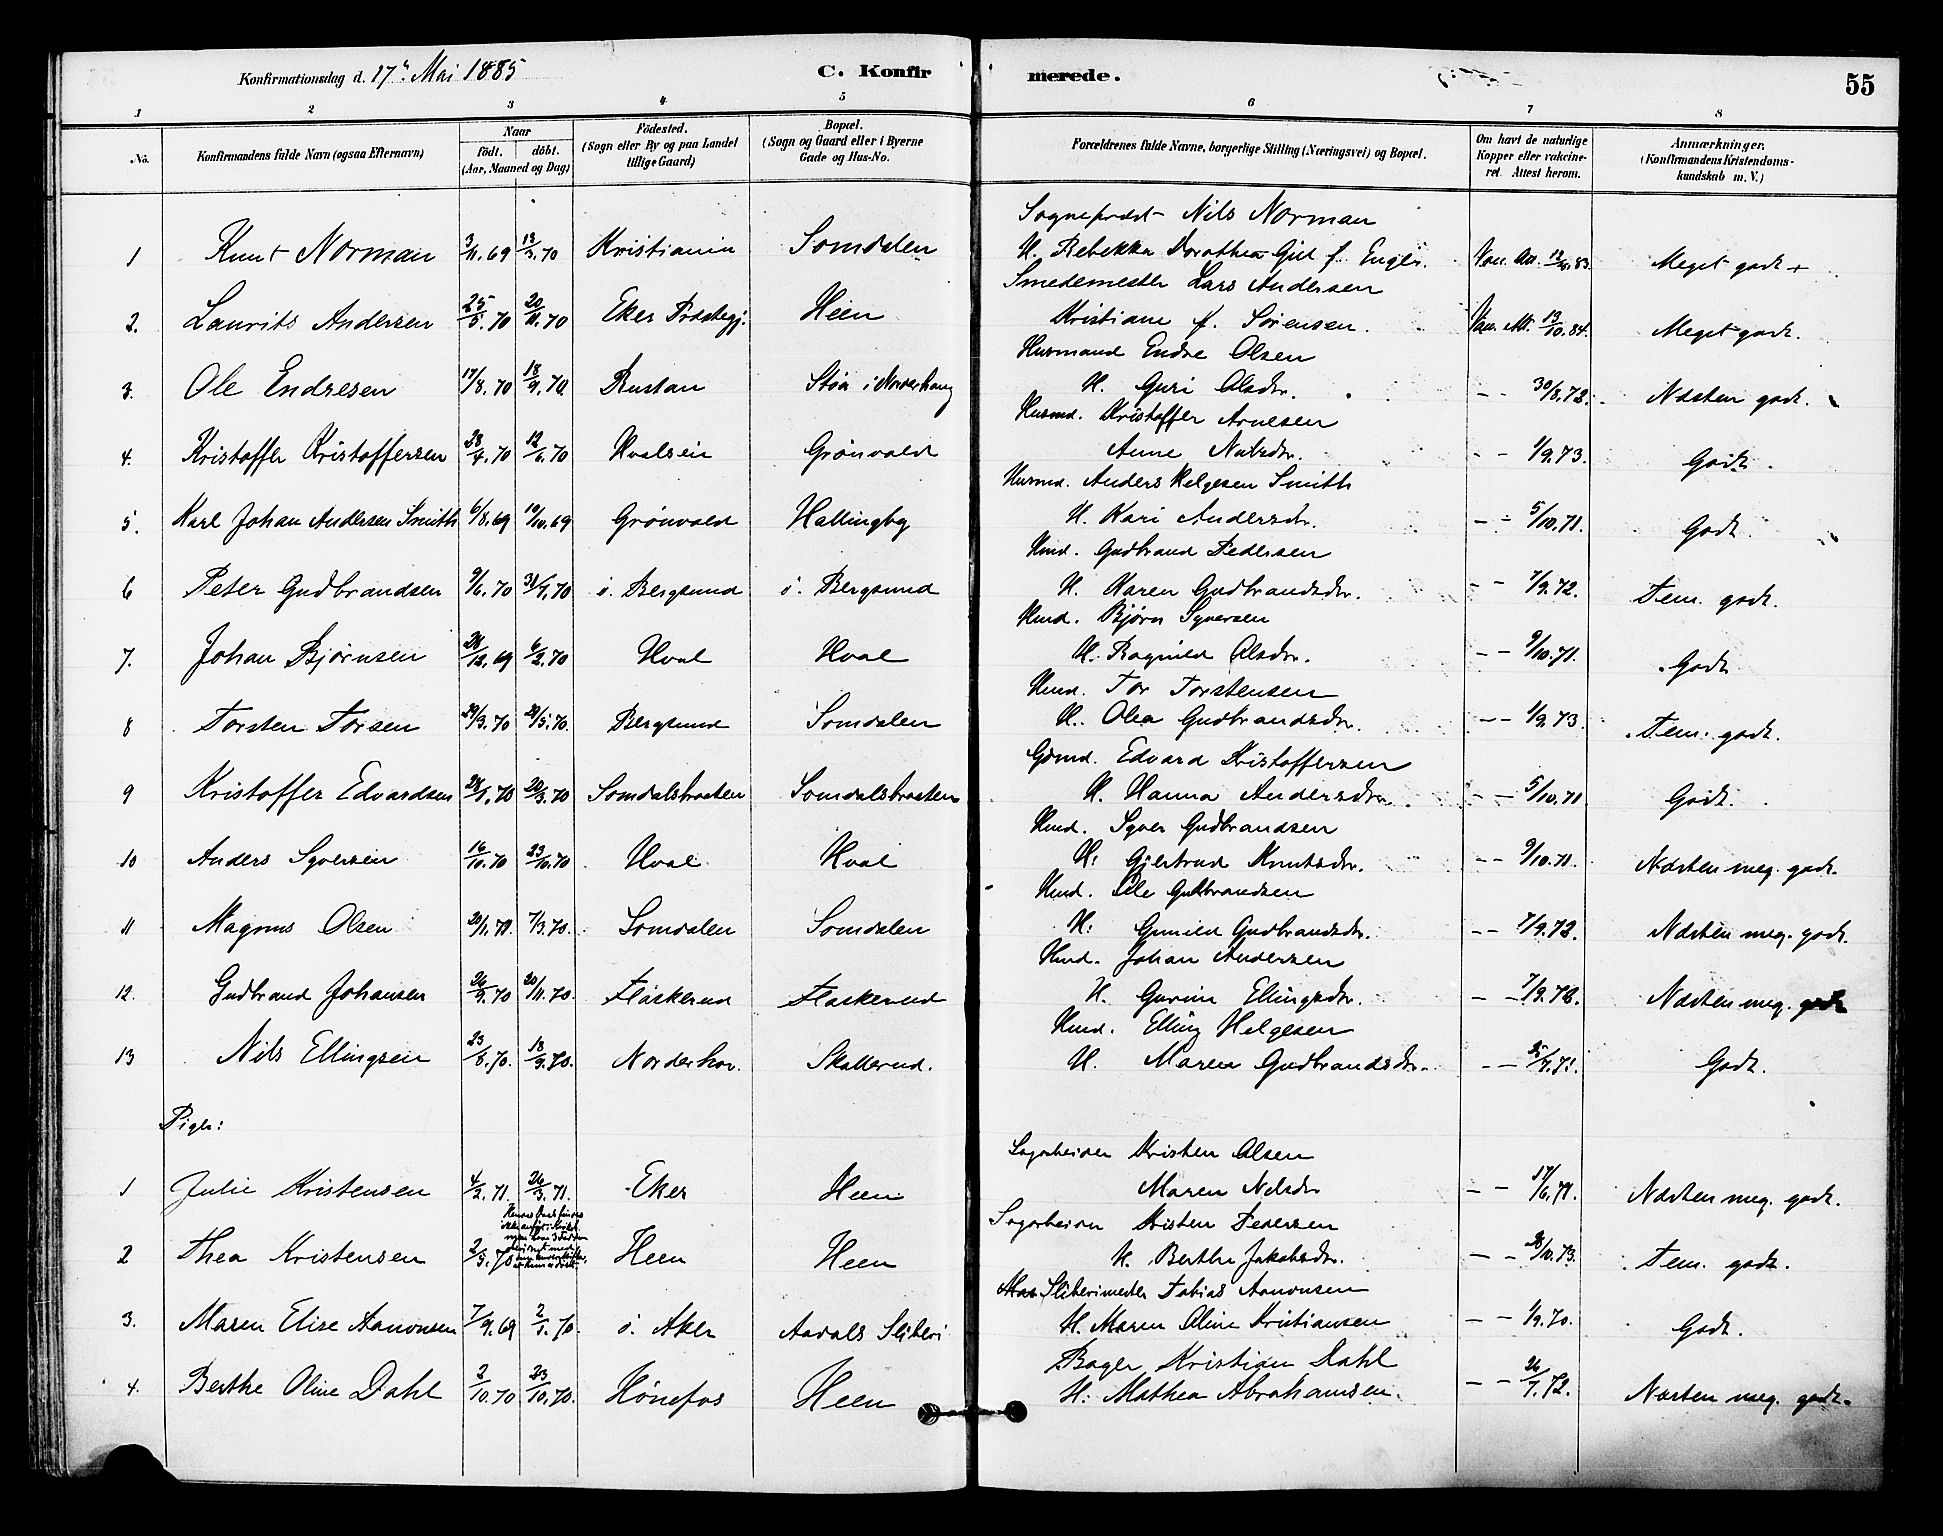 Konfirmationsdag d. 17de Mai 1885 C. Konfirmerede. 55
1 2 3 4 5 6 7 8
No. Konfirmandens fulde Navn (ogsaa Efternavn) Naar født. døbt. (Aar, Maaned og Dag) Fødested. (Sogn eller By og paa Landet tillige Gaard) Bopæl. (Sogn og Gaard eller i Byerne Gade og Hus-No. Forældrenes fulde Navne, borgerlige Stilling (Næringsvei) og Bopæl. Om havt de naturlige Kopper eller vakcineret. Attest herom. Anmærkninger. (Konfirmandens Kristendomskundskab m. V.)
Sogneprest Nils Norman
1 Knut Norman 3/11.69 13/3.70 Kristiania Somdalen H. Rebekka Dorothea f. Meget godt +
Smedemester Lars Andersen
2. Laurits Andersen 25/5.70 20/11.70 Eker Præstegj. Heen Kristiane f. Sørensen. Vac. Att. 13/10.84. Meget godt.
Husmand Endre Olsen
3. Ole Endresen 17/8.70 18/9.70. Bustan Støa i Norderhaug H. Guri Olsdr. - - 30/8.72. Næsten godt.
Husmd. Kristoffer Arnesen
4. Kristoffer Kristoffersen 28/4.70 12/6.70 Hvalseie Grønvold Anne Nubsdr. - - 1/9.73. Godt.
Husmd. Anders Helgesen Smith
5. Karl Johan Andersen Smith 6/8.69 10/10.69 Grønvold Hallingby H. Kari Andersdr. - - 5/10.71. Godt.
Hmd. Gudbrand Pedersen
6 Peter Gudbrandsen 9/6.70 31/7.70 ö. Bergsund ö. Bergsund H. Karen Gudbrandsdr. - - 7/9.72. Tem. godt.
Hmd. Bjørn Syversen
7. Johan Bjørnsen 28/12.69 6/2.70 Hval Hval H. Ragnild Olsdr. - - 9/10.71. Godt
Hmd. Tor Torstensen
8 Torsten Torsen 29/3.70 29/5.70. Bergsund Somdalen H. Olea Gudbrandsdr. - - 1/9.73. Tem. godt.
Gdmd. Edvard Kristoffersen
9 Kristoffer Edvardsen 28/1.70 20/3.70 Somdalsbraaten Somdalsbraaten H. Hanna Andersdr. - - 5/10.71 Godt.
Hmd. Syver Gudbrandsen
10 Anders Syversen 16/10.70 23/10.70 Hval Hval H: Gjertrud Knutsdr. - - 9/10.71. Næsten meg. godt.
Hmd. Ole Gulbrandsen
11 Magnus Olsen 20/1.70. 7/3.70. Somdalen Somdalen H: Gunild Gudbrandsdr. - - 7/9.72. Næsten meg. godt.
Hmd. Johan Andersen
12. Gudbrand Johansen 26/9.70 20/11.70. Flaskerud Flaskerud H. Gurine Ellingsdr. - - 7/9.72. Næsten meg. godt
Hmd. Elling Helgesen
13 Nils Ellingsen 23/8.70. 18/9.70. Norderhov. Skallerud. H. Maren Gudbrandsdr. Godt.
Piger:
Sagarbeider Kristen Olsen
1 Julie Kristensen 4/2.71. 26/3.71. Eker Heen Maren Nilsdr - - 17/6.71. Næsten meg. godt.
Sagarbeider Kristen Pedersen
2 Thea Kristensen 2/3.70 Heen Heen H. Berthe Jakobsdr. - - 28/10.73. Tem. godt.
Sliberimester Tobias Aanonsen
3. Maren Elise Aanonsen 7/9.69 2/1.70. ö. Aker Aadals Sliberi H. Maren Oline Kristiansen - - 1/9.70. Godt.
Bager Kristian Dahl
4. Berthe Oline Dahl 2/10.70 23/10.70. Hønefos Heen H. Mathea Abrahamsen. - - 26/7.72. Næsten meg. godt.